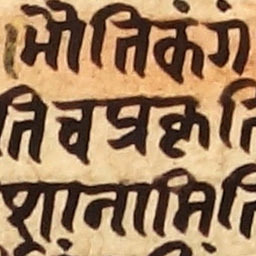 भौतिकंगं
तिवप्रकृति
शानामिति